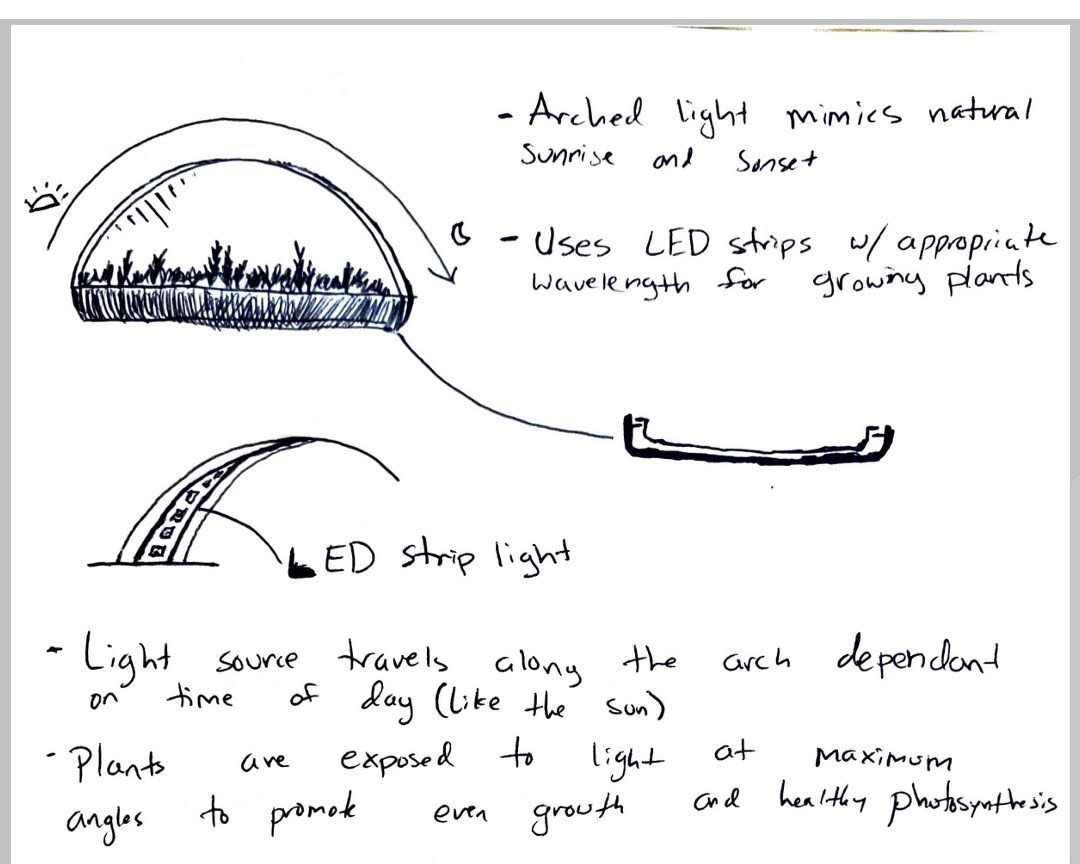 - Arched light mimics natural
sunrise and sunset
- Uses LED strips w/ appropriate
wavelength for growing plants
LED strip light
- Light source travels along the arch dependant
on time of day (like the sun)
- Plants are exposed to light at maximum
angles to promote even growth and healthy photosynthesis